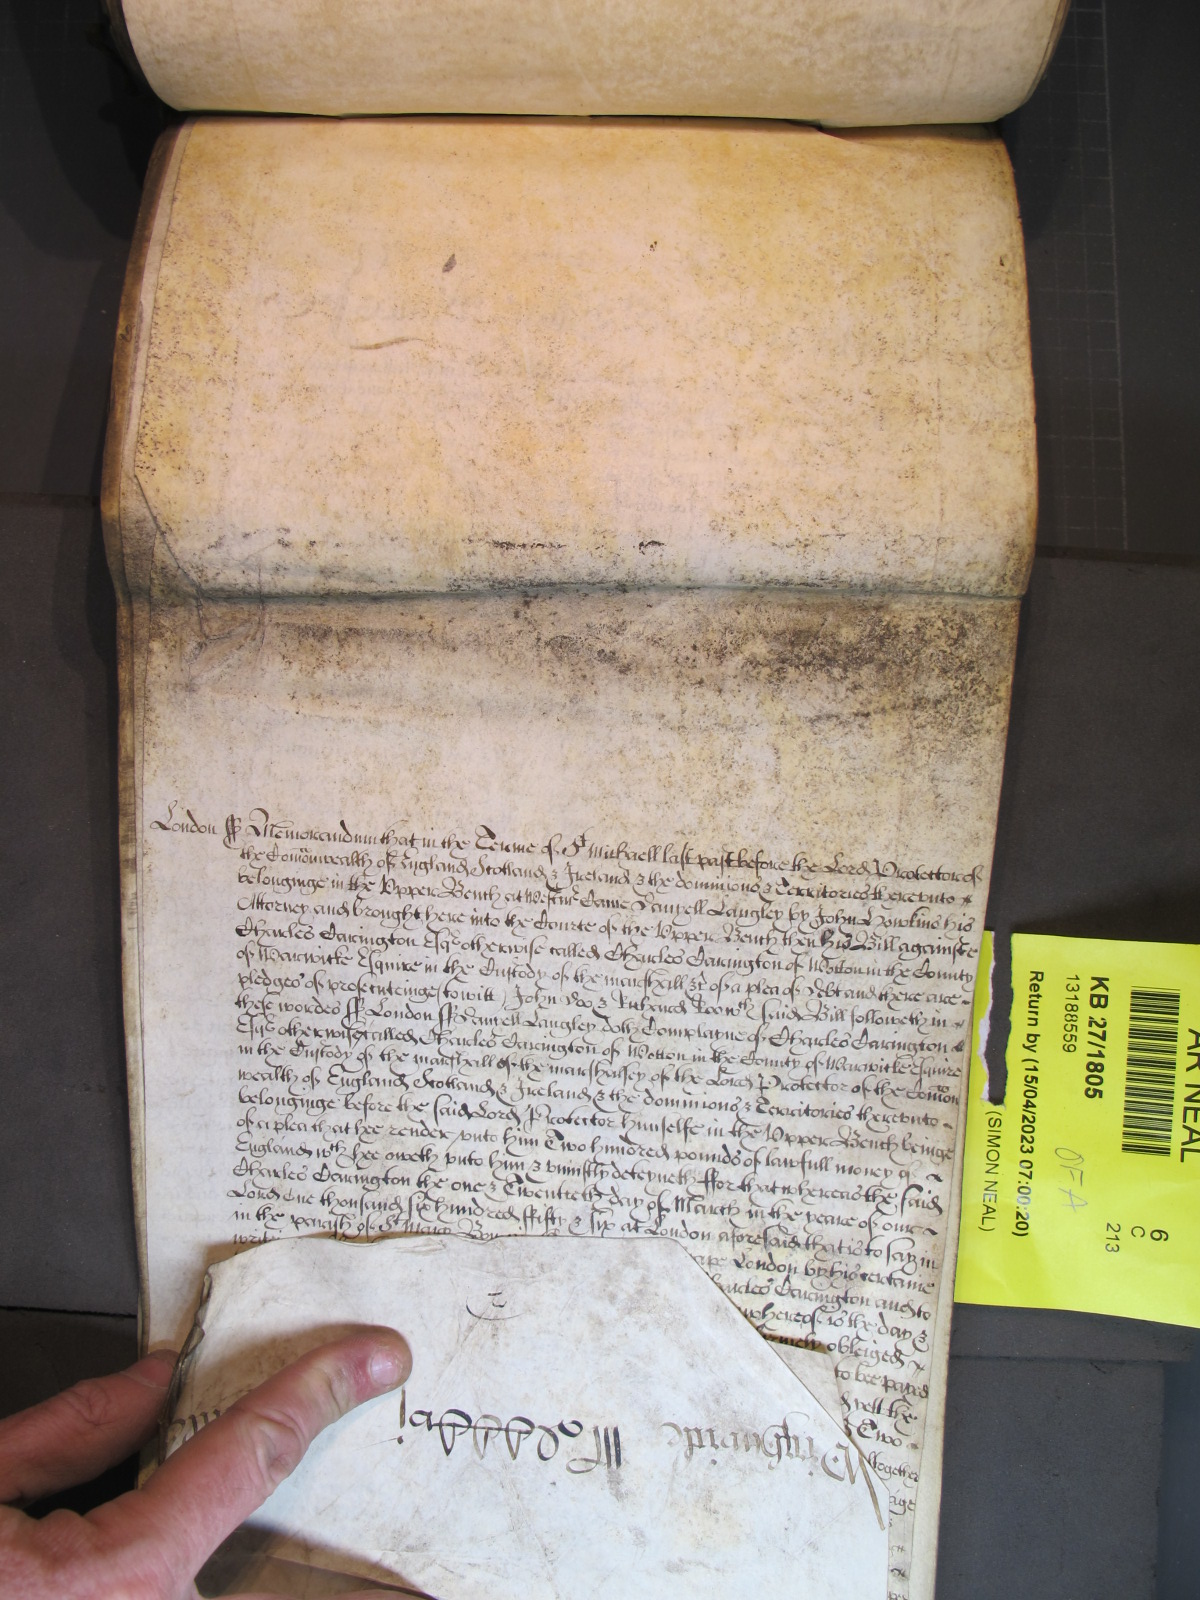 London ss Memorandum that in the Terme of St Michaell last past before the Lord Protector of
the Comonwealth of England Scotland & Ireland & the dominions & Territories thereunto
belonginge in the Upper Bench at Westmr Came Daniell Langley by John Hawkins his
Attorney and brought here into the Courte of the Upper Bench then his Bill againste
Charles Carington Esqr otherwise called Charles Carington of Wotton in the County
of Warwicke Esquire in the Custody of the marshall &c of a plea of Debt and there are
pledges of prosecuteinge (to witt) John Doo & Richard Roo wch said Bill followeth in
these wordes ss London ss Daniell Langley doth Complayne of Charles Carington
Esqr otherwise called Charles Carington of Wotton in the County of Warwicke Esquire
in the Custody of the marshall of the marshalsey of the Lord Protector of the Comon
wealth of England Scotland & Ireland & the dominions & Territories thereunto
belonginge before the said Lord Protector himselfe in the Upper Bench beinge
of a plea that hee render unto him Two hundred pounds of lawfull money of
England wch hee oweth unto him & uniustly deteyneth ffor that whereas the said
Charles Carington the one & Twentieth day of March in the yeare of our
Lord One thousand six hundred ffifty & six at London aforesaid that is to say in
in the parish of St Mary
London by his certaine
Charles Carington and to
whereof is the day &
obleiged
to bee payed
well the
Two
together
KB 27/1805
13188559
Return by (15/04/2023 07:00:20)
(SIMON NEAL)
AR NEAL
6
C
213
OFA